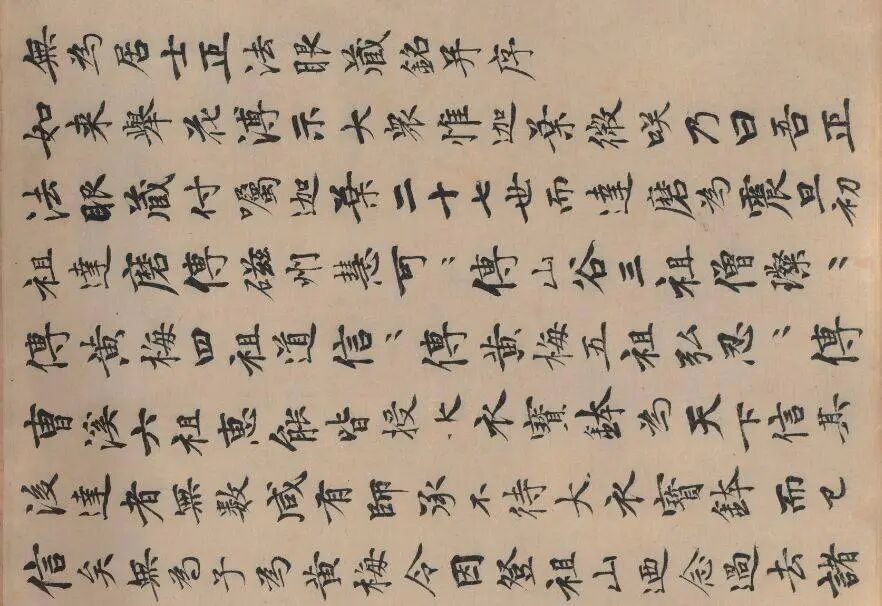 無為居士正法眼藏銘并序
如来舉花溥示大衆惟迦葉微咲乃曰吾正
法眼藏付囑迦葉二十七世而達磨為震旦初
祖達磨傳磁州慧可〻傳山谷三祖僧璨〻
傳黄梅四祖道信〻傳黄梅五祖弘忍〻傳
曹溪六祖惠能皆授大衣寶鉢為天下信其
後達者無数咸有師承不待大衣寶鉢而已
信矣無為子為黄梅令因登祖山迺念過去諸